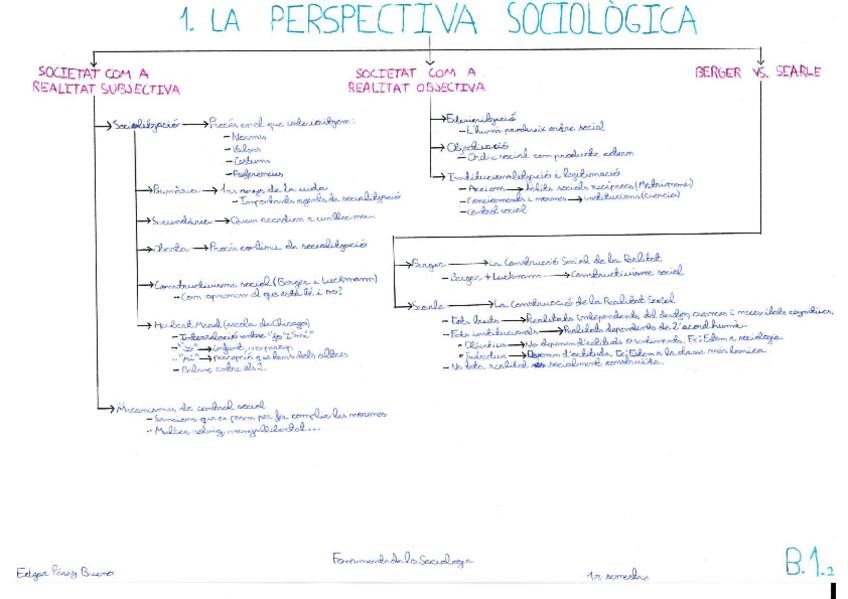 1. LA PERSPECTIVA SOCIOLÒGICA
SOCIETAT COM A
REALITAT SUBJECTIVA
Socialització → Procés en el que interioritzem:
- Normes
- Valors
- Costums
- Preferències
Primària → 1rs anys de la vida
- Importants agents de socialització
Secundària → Quan accedim a un lloc nou
Oberta → Procés continu de socialització
Constructivisme social (Berger i Luckmann)
- Com aprenem el que està bé i no?
Herbert Mead (escola de Chicago)
- Interrelació entre "jo" i "mi"
- "Jo" →
- "mi" → percepció que tenen els altres
- Balanç entre els 2.
Mecanismes de control social
- Sancions que es posen per fer complir les normes
- Multes,
SOCIETAT COM A
REALITAT OBJECTIVA
Exteriorització
- L'humà produeix ordre social
Objectivació
- Ordre social com producte extern
Institucionalització i legitimació
- Accions → hàbits socials recíprocs (Matrimoni)
- Coneixements i normes → institucions (Ciència)
- Control social
BERGER VS. SEARLE
Berger → La Construcció Social de la Realitat
- Berger + Luckmann → Constructivisme social
Searle → La Construcció de la Realitat Social
- Fets bruts → Realitats independents del desig, creences i necessitats cognitives
- Fets institucionals → Realitats dependents de l'acord humà
Objectius → No depenen d'actituds o sentiments. Ex: Estem a sociologia
Subjectius → Depenen d'actituds. Ex: Estem a la classe més bonica
- No tota realitat és socialment construïda.
Edgar Pérez Bueno
Fonaments de la Sociologia
1r semestre
B.1.2